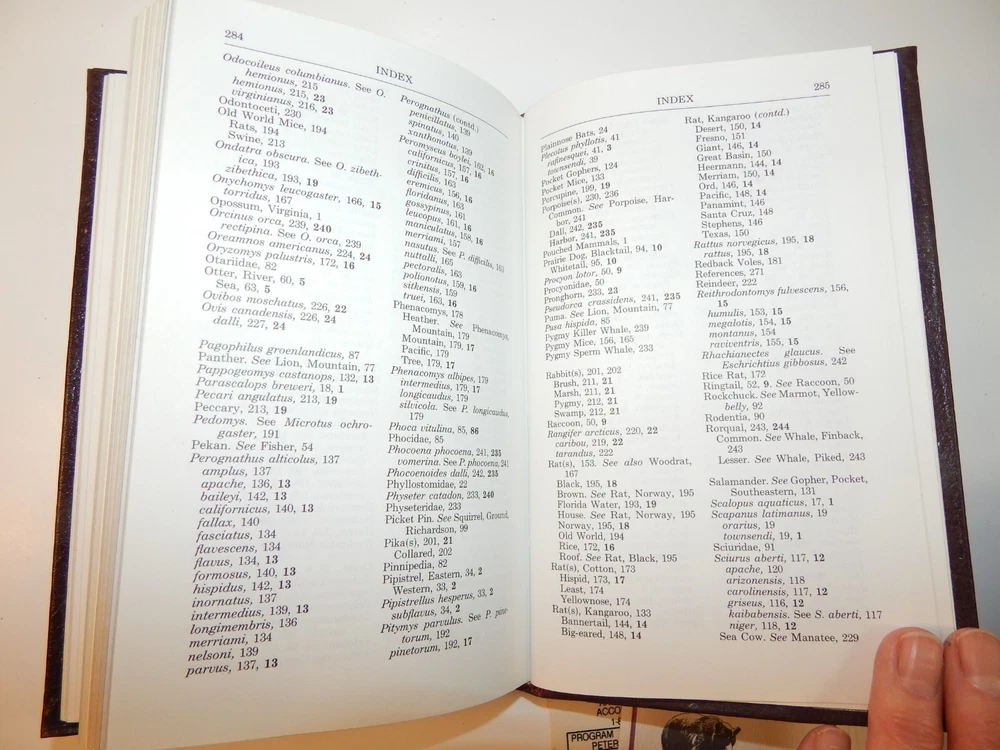 284
INDEX
Odocoileus columbianus. See O.
hemionus, 215
hemionus, 215, 23
virginianus, 216, 23
Odontoceti, 230
Old World Mice, 194
Rats, 194
Swine, 213
Ondatra obscura. See O. zibeth-
ica, 193
zibethica, 193, 19
Onychomys leucogaster, 166, 15
torridus, 167
Opossum, Virginia, 1
Orcinus orca, 239, 240
rectipina. See O. orca, 239
Oreamnos americanus, 224, 24
Oryzomys palustris, 172, 16
Otariidae, 82
Otter, River, 60, 5
Sea, 63, 5
Ovibos moschatus, 226, 22
Ovis canadensis, 226, 24
dalli, 227, 24
Pagophilus groenlandicus, 87
Panther. See Lion, Mountain, 77
Pappogeomys castanops, 132, 13
Parascalops breweri, 18, 1
Pecari angulatus, 213, 19
Peccary, 213, 19
Pedomys. See Microtus ochro-
gaster, 191
Pekan. See Fisher, 54
Perognathus alticolus, 137
amplus, 137
apache, 136, 13
baileyi, 142, 13
californicus, 140, 13
fallax, 140
fasciatus, 134
flavescens, 134
flavus, 134, 13
formosus, 140, 13
hispidus, 142, 13
inornatus, 137
intermedius, 139, 13
longimembris, 136
merriami, 134
nelsoni, 139
parvus, 137, 13
Perognathus (contd.)
penicillatus, 139
spinatus, 140
xanthonotus, 139
Peromyscus boylei, 162, 16
californicus, 157, 16
crinitus, 157, 16
difficilis, 163
eremicus, 156, 16
floridanus, 163
gossypinus, 161
leucopus, 161, 16
maniculatus, 158, 16
merriami, 157
nasutus. See P. difficilis, 163
nuttalli, 165
pectoralis, 163
polionotus, 159, 16
sitkensis, 159
truei, 163, 16
Phenacomys, 178
Heather. See Phenacomys,
Mountain, 179
Mountain, 179, 17
Pacific, 179
Tree, 179, 17
Phenacomys albipes, 179
intermedius, 179, 17
longicaudus, 179
silvicola. See P. longicaudus,
179
Phoca vitulina, 85, 86
Phocidae, 85
Phocoena phocoena, 241, 235
vomerina. See P. phocoena, 241
Phocoenoides dalli, 242, 235
Phyllostomidae, 22
Physeter catadon, 233, 240
Physeteridae, 233
Picket Pin. See Squirrel, Ground,
Richardson, 99
Pika(s), 201, 21
Collared, 202
Pinnipedia, 82
Pipistrel, Eastern, 34, 2
Western, 33, 2
Pipistrellus hesperus, 33, 2
subflavus, 34, 2
Pitymys parvulus. See P. pine-
torum, 192
pinetorum, 192, 17
285
INDEX
Plainnose Bats, 24
Plecotus phyllotis, 41
rafinesquei, 41, 3
townsendi, 39
Pocket Gophers, 124
Pocket Mice, 133
Porcupine, 199, 19
Porpoise(s), 230, 236
Common. See Porpoise, Har-
bor, 241
Dall, 242, 235
Harbor, 241, 235
Pouched Mammals, 1
Prairie Dog, Blacktail, 94, 10
Whitetail, 95, 10
Procyon lotor, 50, 9
Procyonidae, 50
Pronghorn, 233, 23
Pseudorca crassidens, 241, 235
Puma. See Lion, Mountain, 77
Pusa hispida, 85
Pygmy Killer Whale, 239
Pygmy Mice, 156, 165
Pygmy Sperm Whale, 233
Rabbit(s), 201, 202
Brush, 211, 21
Marsh, 211, 21
Pygmy, 212, 21
Swamp, 212, 21
Raccoon, 50, 9
Rangifer arcticus, 220, 22
caribou, 219, 22
tarandus, 222
Rat(s), 153. See also Woodrat,
167
Black, 195, 18
Brown. See Rat, Norway, 195
Florida Water, 193, 19
House. See Rat, Norway, 195
Norway, 195, 18
Old World, 194
Rice, 172, 16
Roof. See Rat, Black, 195
Rat(s), Cotton, 173
Hispid, 173, 17
Least, 174
Yellownose, 174
Rat(s), Kangaroo, 133
Bannertail, 144, 14
Big-eared, 148, 14
Rat, Kangaroo (contd.)
Desert, 150, 14
Fresno, 151
Giant, 146, 14
Great Basin, 150
Heermann, 144, 14
Merriam, 150, 14
Ord, 146, 14
Pacific, 148, 14
Panamint, 146
Santa Cruz, 148
Stephens, 146
Texas, 150
Rattus norvegicus, 195, 18
rattus, 195, 18
Redback Voles, 181
References, 271
Reindeer, 222
Reithrodontomys fulvescens, 156,
15
humulis, 153, 15
megalotis, 154, 15
montanus, 154
raviventris, 155, 15
Rhachianectes glaucus. See
Eschrichtius gibbosus, 242
Rice Rat, 172
Ringtail, 52, 9. See Raccoon, 50
Rockchuck. See Marmot, Yellow-
belly, 92
Rodentia, 90
Rorqual, 243, 244
Common. See Whale, Finback,
243
Lesser. See Whale, Piked, 243
Salamander. See Gopher, Pocket,
Southeastern, 131
Scalopus aquaticus, 17, 1
Scapanus latimanus, 19
orarius, 19
townsendi, 19, 1
Sciuridae, 91
Sciurus aberti, 117, 12
apache, 120
arizonensis, 118
carolinensis, 117, 12
griseus, 116, 12
kaibabensis. See S. aberti, 117
niger, 118, 12
Sea Cow. See Manatee, 229
ACCO
PROGRAM
PETER